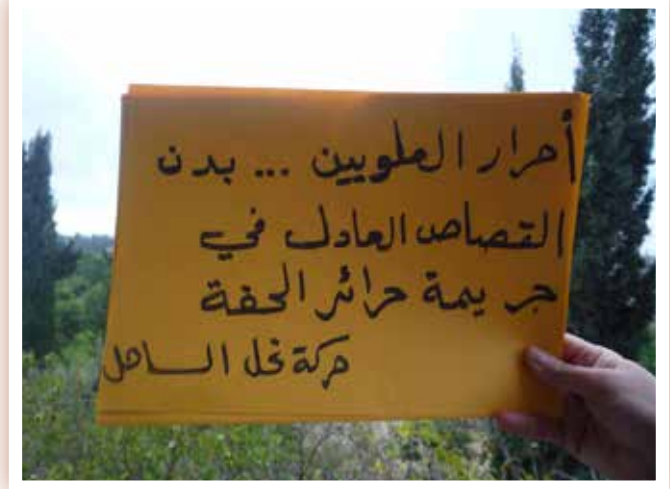 أحرار العلويين ... بدن
القصاص العادل في
جريمة حرائر الحفة
حركة نحل الساحل